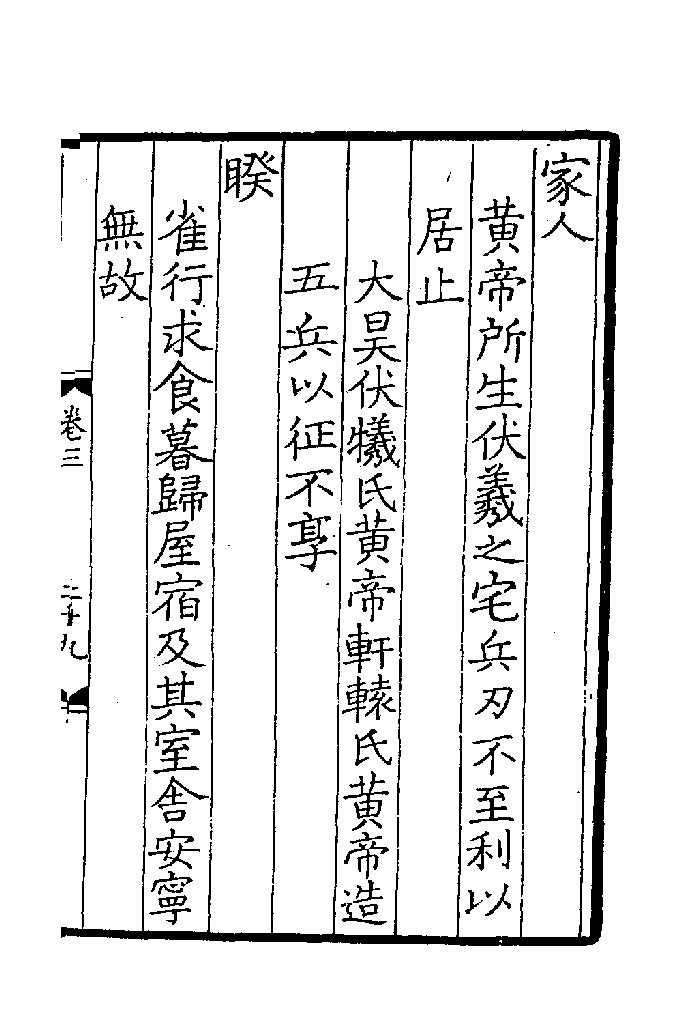 家人
黄帝所生伏羲之宅兵刃不至利以
居止
大昊伏犧氏黄帝軒轅氏黄帝造
五兵以征不享
睽
雀行求食暮歸屋宿及其室舎安寧
無故
卷三
二十九